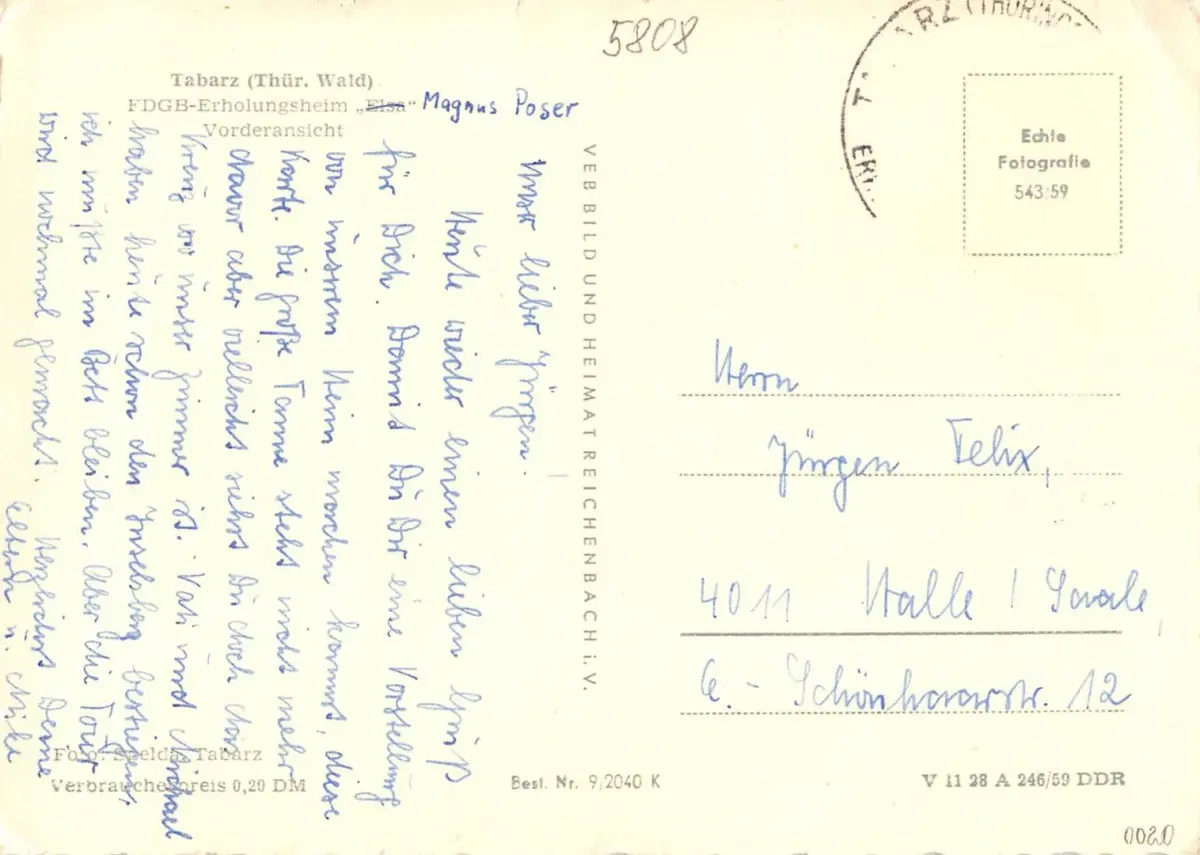 5808
Tabarz (Thür. Wald)
FDGB-Erholungsheim „Elsa“ Magnus Poser
Vorderansicht
Unser lieber Jürgen.
Heute wieder einen lieben Gruß
für Dich. Damit Du Dir eine Vorstellung
von unserem Heim machen kannst, diese
Karte. Die große Tanne steht nicht mehr
davor aber vielleicht siehst Du doch das
Kreuz wo unser Zimmer ist. Vati und Michael
haben heute schon den Inselsberg bestiegen,
ich mußte im Bett bleiben. Aber die Tour
wird nochmal gemacht. Herzlichst Deine
Eltern u. Micha
Foto: Spelda, Tabarz
Verbraucherpreis 0,20 DM
VEB BILD UND HEIMAT REICHENBACH i. V.
Best. Nr. 9/2040 K
ARZ (THÜRING
Echte
Fotografie
543/59
Herrn
Jürgen Felix,
4011 Halle / Saale
C.- Schönhaarstr. 12
V 11 28 A 246/59 DDR
0020